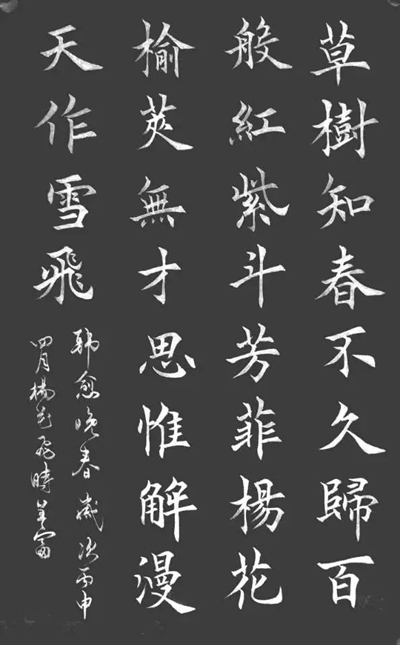 草樹知春不久歸百
般紅紫斗芳菲楊花
榆莢無才思惟解漫
天作雪飛
韓愈晚春歲次丙申
四月楊花飛時